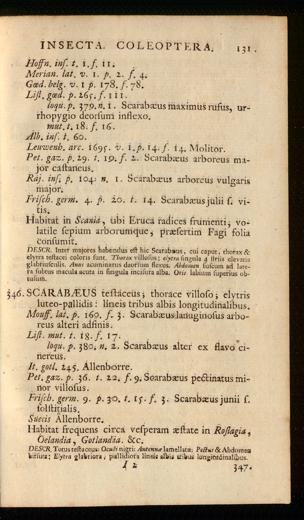 INSECTA COLEOPTERA. 131.
Hoffn. inf. t. 1. f. 11.
Merian. lat. v. 1. p. 2. f. 4.
Gœd. belg. v. 1 p. 178. f. 78.
Liſt. gœd. p. 265. f. 111.
loqu. p. 379. n. 1. Scarabæus maximus rufus, ur-
rhopygio deorſum inflexo.
mut. t. 18. f. 16.
Alb. inſ. t. 60.
Leuwenh. arc. 1695. v. 1. p. 14. f. 14. Molitor.
Pet. gaz. p. 29. t. 19. f. 2. Scarabæus arboreus ma-
jor caſtaneus.
Raj. inſ. p. 104. n. 1. Scarabæus arboreus vulgaris
major.
Friſch. germ. 4. p. 20. t. 14. Scarabæus julii ſ. vi-
tis.
Habitat in Scania, ubi Eruca radices frumenti, vo-
latile ſepium arborumque, præſertim Fagi folia
conſumit.
DESCR. Inter majores habendus eſt hic Scarabæus, cui caput, thorax &
elytra teſtacei coloris ſunt. Thorax villoſus; elytra ſingula 4 ſtriis elevatis
glabriuſculis. Anus acuminatus deorſum flexus. Abdomen fuſcum ad late-
ra ſubtus macula acuta in ſingula inciſura alba. Oris labium ſuperius ob-
tuſum.
346. SCARABÆUS teſtaceus; thorace villoſo; elytris
luteo-pallidis: lineis tribus albis longitudinalibus.
Mouff. lat. p. 160. f. 3. Scarabæus lanuginoſus arbo-
reus alteri adfinis.
Liſt. mut. t. 18. f. 17.
loqu. p. 380. n. 2. Scarabæus alter ex flavo ci-
nereus.
It. gotl. 245. Allenborre.
Pet. gaz. p. 36. t. 22. f. 9. Scarabæus pectinatus mi-
nor villoſus.
Friſch. germ. 9. p. 30. t. 15. f. 3. Scarabæus junii ſ.
ſolſtitialis.
Suecis Allenborre.
Habitat frequens circa veſperam æſtate in Roſlagia,
Oelandia, Gotlandia. &c.
DESCR. Totus teſtaceus: Oculi nigri: Antennæ lamellatæ: Pectus & Abdomen
hirſuta; Elytra glabriora, pallidiora lineis albis tribus longitudinalibus.
I 2 347.